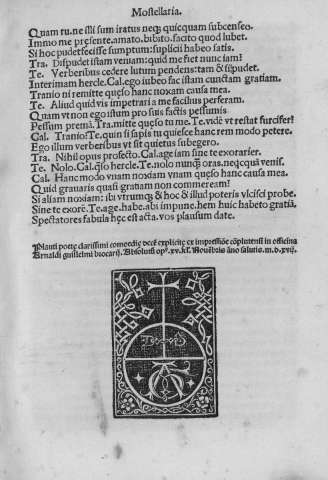 Mostellaria.
Quam tu. ne illi sum iratus neq; quicquam subcenseo.
Immo me presente. amato. bibato. facito quod lubet.
Si hoc pudet fecisse sumptum: suplicii habeo satis.
Tra. Dispudet istam veniam: quid me fiet nunc iam?
Te. Verberibus cedere lutum pendens: tam & si pudet.
Interimam hercle. Cal. ego iubeo fac istam cunctam gratiam.
Tranio ni remitte queso hanc noxam causa mea.
Te. Aliud quid vis impetrari a me facilius perferam.
Quam vt non ego istum pro suis factis pessumis
Pessum premā. Tra. mitte queso tu me. Te. vidē vt restat furcifer?
Cal. Tranio. Te. quin si sapis tu quiesce hanc rem modo petere.
Ego illum verberibus vt sit quietus subegero.
Tra. Nihil opus profecto. Cal. age iam sine te exorarier.
Te. Nolo. Cal. q̄so hercle. Te. nolo nunq̄ oras. neq; quā venis.
Cal. Hanc modo vnam noxiam vnam queso hanc causa mea.
Quid grauaris quasi gratiam non commeream?
Si aliam noxiam: ibi vtrumq; & hoc & illud poteris vlcisci probe.
Sine te exorē. Te. age. habe. abi impune. hem huic habeto gratiā.
Spectatores fabula hęc est acta. vos plausum date.
Plauti poete clarissimi comoedię explicite ex impressiōe cōplutensi in officina
Arnaldi guillelmi brocarij. Absolutū